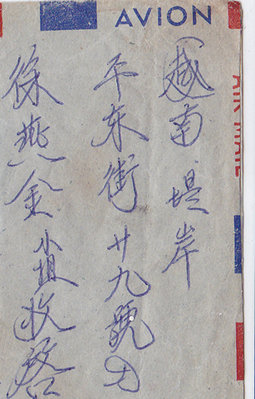 AVION
AIR MAIL
(越南)堤岸
平东街廿九號
徐燕金小姐收啓